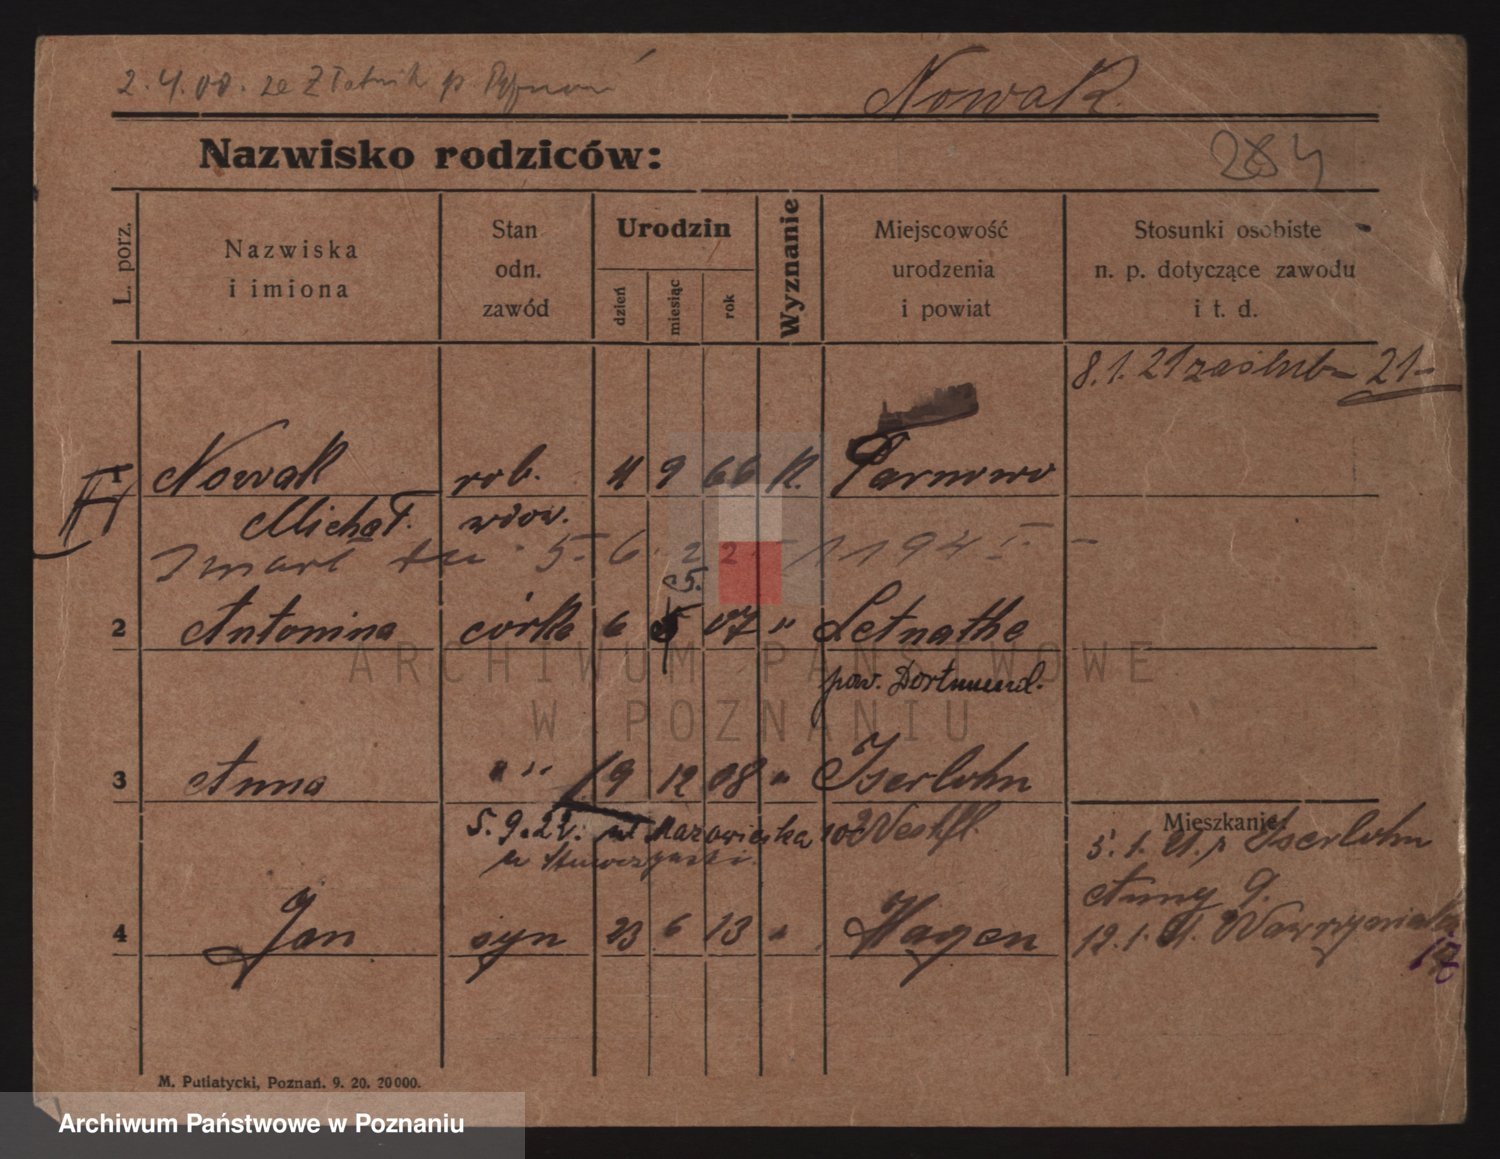 2.4.00. ze Złotnik p. Poznań
Nowak.
Nazwisko rodziców:
284
L. porz.
Nazwiska
i imiona
Stan
odn.
zawód
Urodzin
dzień
miesiąc
rok
Wyznanie
Miejscowość
urodzenia
i powiat
Stosunki osobiste
n. p. dotyczące zawodu
i t. d.
8.1.21 zaślub 21
1 Nowak rob. 4 9 66 K. Parnowo
Michał. wdow.
Zmarł tu 5 6
5.
2 Antonina córka 6 07 " Letmathe
pow. Dortmund.
3 Anna " " 19 12 08 " Iserlohn
5.9.22. ul. Mazowiecka 10 Westf.
u
Mieszkanie
5.1.21. z Iserlohn
Anny 9.
4 Jan syn 23 6 13 " Hagen
12.1.21. Wawrzyniaka
17
M. Putiatycki, Poznań. 9. 20. 20 000.
ARCHIWUM PAŃSTWOWE
W POZNANIU
Archiwum Państwowe w Poznaniu